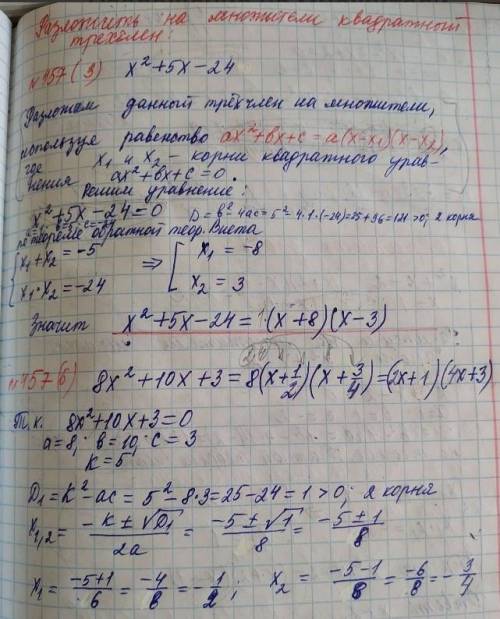 Разложить на множители квадратный
трехчлен:
№ 457 (3) x² + 5x - 24
Разложим данный трёхчлен на множители,
используя равенство ax² + bx + c = a(x - x₁)(x - x₂),
где x₁ и x₂ - корни квадратного урав-
нения ax² + bx + c = 0.
Решим уравнение:
x² + 5x - 24 = 0 D = b² - 4ac = 5² - 4·1·(-24) = 25 + 96 = 121 > 0; 2 корня
по теореме обратной теор. Виета
{ x₁ + x₂ = -5 ⇒ [ x₁ = -8
{ x₁ · x₂ = -24 [ x₂ = 3
Значит x² + 5x - 24 = 1(x + 8)(x - 3)
№ 457 (6) 8x² + 10x + 3 = 8(x + 1/2)(x + 3/4) = (2x + 1)(4x + 3)
Т.к. 8x² + 10x + 3 = 0
a = 8; b = 10; c = 3
k = 5
D₁ = k² - ac = 5² - 8·3 = 25 - 24 = 1 > 0; 2 корня
x₁,₂ = (-k ± √D₁)/2a = (-5 ± √1)/8 = (-5 ± 1)/8
x₁ = (-5+1)/6 = -4/8 = -1/2; x₂ = (-5-1)/8 = -6/8 = -3/4